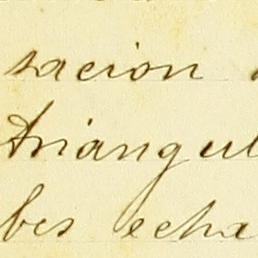 racion
triangul
bes echa